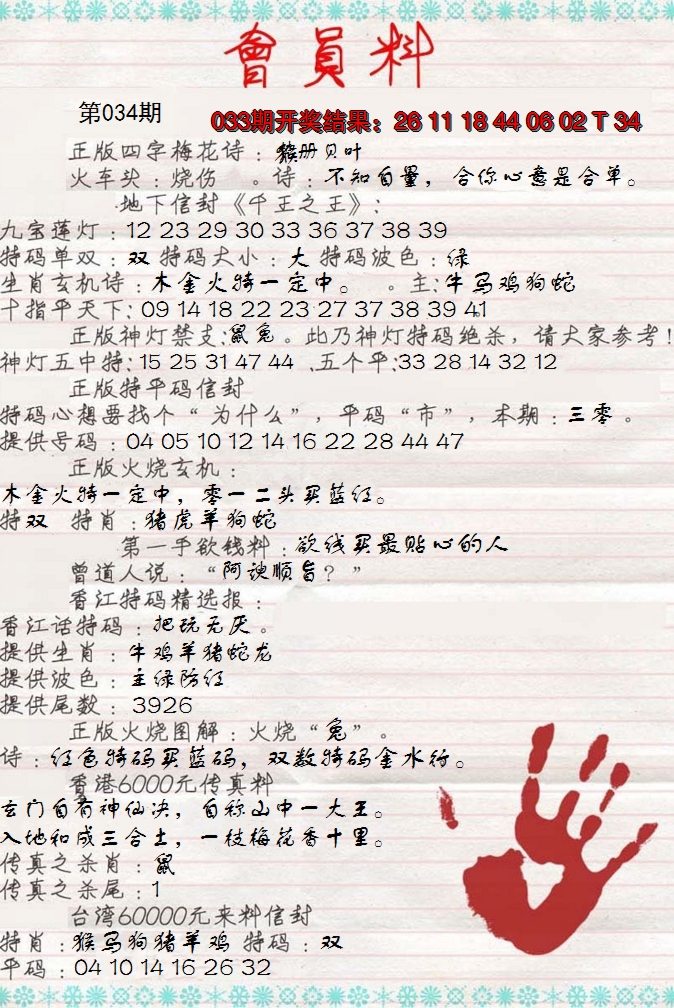 會員料
第034期
033期开奖结果：26 11 18 44 06 02 T 34
正版四字梅花诗：猴册贝叶
火车头：烧伤 。诗：不知自量，合你心意是合单。
地下信封《千王之王》：
九宝莲灯：12 23 29 30 33 36 37 38 39
特码单双：双 特码大小：大 特码波色：绿
生肖玄机诗：木金火特一定中。 。主:牛马鸡狗蛇
十指平天下: 09 14 18 22 23 27 37 38 39 41
正版神灯禁支:鼠兔。此乃神灯特码绝杀，请大家参考!
神灯五中特:15 25 31 47 44 、五个平:33 28 14 32 12
正版特平码信封
特码心想要找个“为什么”，平码“市”，本期：三零。
提供号码：04 05 10 12 14 16 22 28 44 47
正版火烧玄机：
木金火特一定中，零一二头买蓝红。
特双 特肖：猪虎羊狗蛇
第一手欲钱料：欲线买最贴心的人
曾道人说：“阿谀顺旨？”
香江特码精选报：
香江话特码：把玩无厌。
提供生肖：牛鸡羊猪蛇龙
提供波色：主绿防红
提供尾数：3926
正版火烧图解：火烧“兔”。
诗：红色特码买蓝码，双数特码金水行。
香港6000元传真料
玄门自有神仙决，自称山中一大王。
入地和成三合土，一枝梅花香十里。
传真之杀肖：鼠
传真之杀尾：1
台湾60000元来料信封
特肖：猴马狗猪羊鸡 特码：双
平码：04 10 14 16 26 32